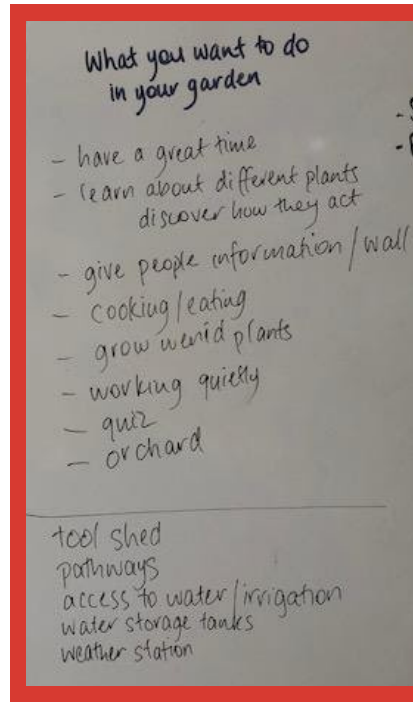 What you want to do
in your garden
- have a great time
- learn about different plants
discover how they act
- give people information/wall
- cooking/eating
- grow wenid plants
- working quietly
- quiz
- orchard
tool shed
pathways
access to water/irrigation
water storage tanks
weather station